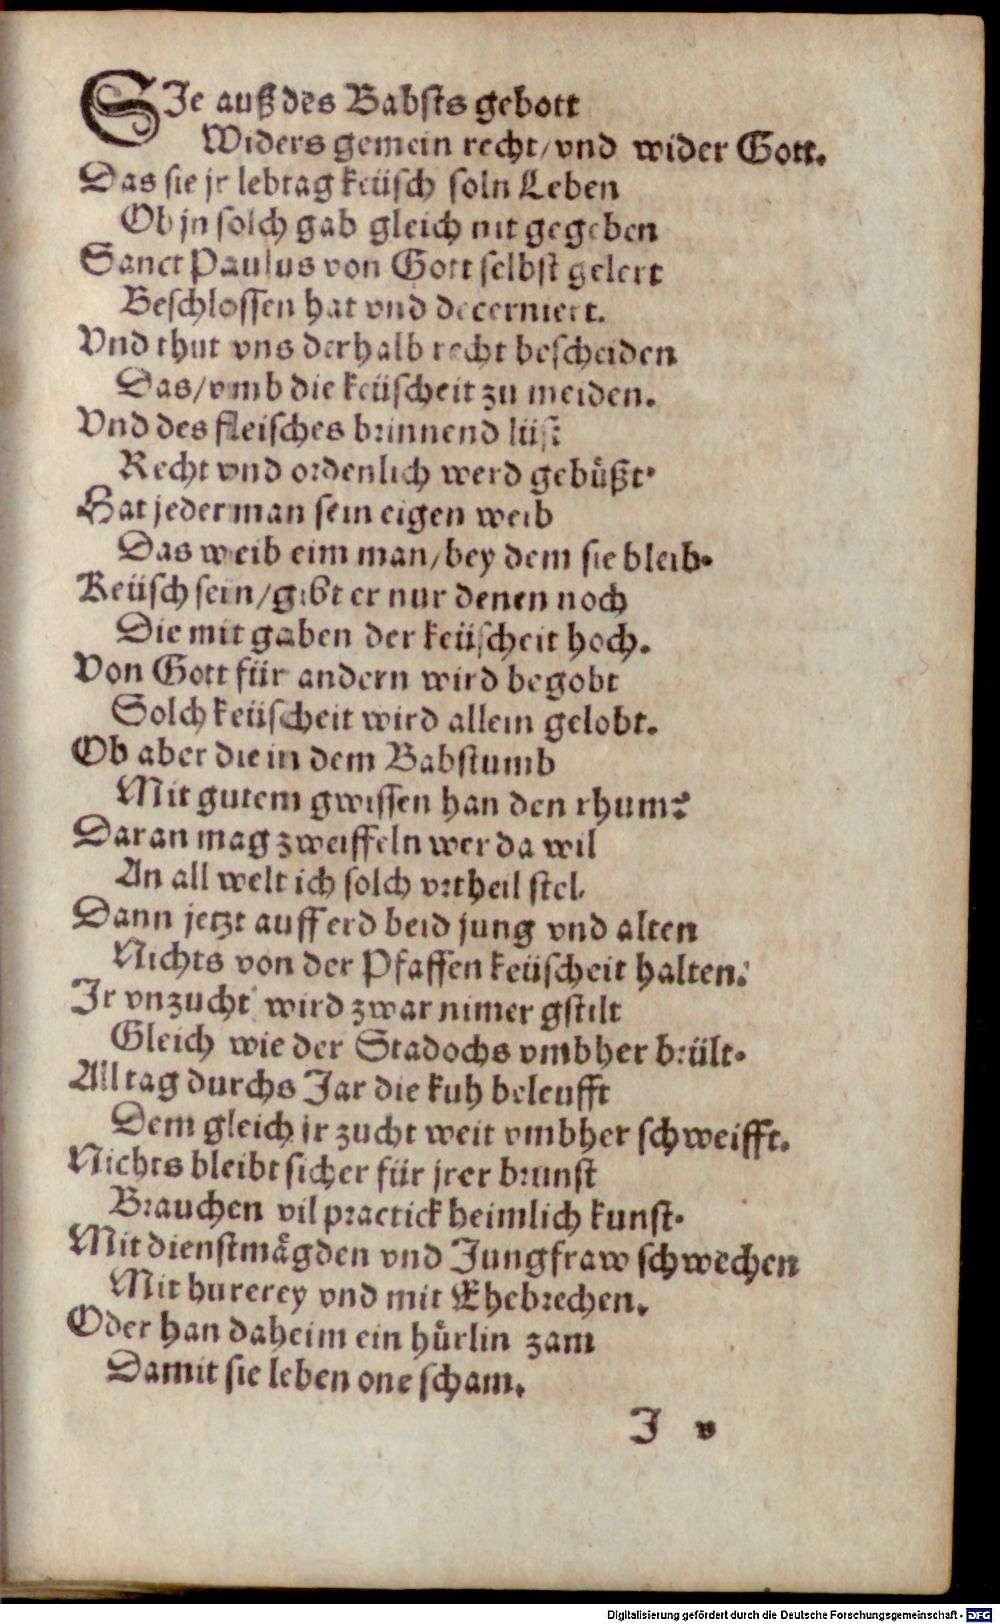 SIe auß des Babsts gebott
Widers gemein recht/vnd wider Gott.
Das sie jr lebtag keüsch soln Leben
Ob jn solch gab gleich nit gegeben
Sanct Paulus von Gott selbst gelert
Beschlossen hat vnd decerniert.
Vnd thut vns derhalb recht bescheiden
Das/vmb die keüscheit zu meiden.
Vnd des fleisches brinnend lüst
Recht vnd ordenlich werd gebüßt.
Hat jederman sein eigen weib
Das weib eim man/bey dem sie bleib.
Keüsch sein/gibt er nur denen noch
Die mit gaben der keüscheit hoch.
Von Gott für andern wird begobt
Solch keüscheit wird allein gelobt.
Ob aber die in dem Babstumb
Mit gutem gwissen han den rhum?
Daran mag zweiffeln wer da wil
An all welt ich solch vrtheil stel.
Dann jetzt auff erd beid jung vnd alten
Nichts von der Pfaffen keüscheit halten.
Ir vnzucht wird zwar nimer gstilt
Gleich wie der Stadochs vmbher brült.
All tag durchs Jar die kuh beleufft
Dem gleich jr zucht weit vmbher schweifft.
Nichts bleibt sicher für jrer brunst
Brauchen vil practick heimlich kunst.
Mit dienstmågden vnd Jungfraw schwechen
Mit hurerey vnd mit Ehebrechen.
Oder han daheim ein hůrlin zam
Damit sie leben one scham.
I v
Digitalisierung gefördert durch die Deutsche Forschungsgemeinschaft - DFG